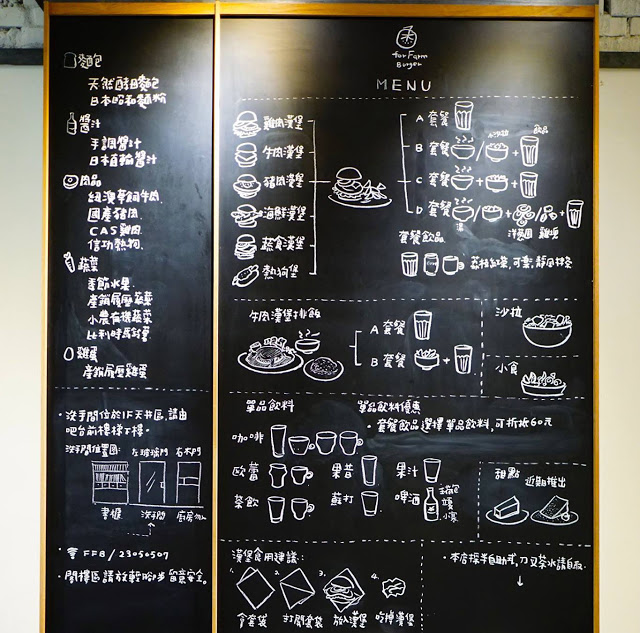 麵包
天然酵母麵包
日本昭和麵粉
醬汁
手調醬汁
日本直輸醬汁
肉品
紐澳草飼牛肉
國產豬肉
CAS雞肉
信功熱狗
蔬菜
季節水果
產銷履歷蔬菜
小農有機蔬菜
比利時馬鈴薯
雞蛋
產銷履歷雞蛋
·洗手間位於1F天井區,請由
吧台前樓梯下樓。
洗手間位置圖:
左玻璃門
右木門
書櫃
洗手間
廚房
FFB/23050507
·閣樓區請放輕腳步 留意安全。
for Farm
Burger
MENU
雞肉漢堡
牛肉漢堡
豬肉漢堡
海鮮漢堡
蔬食漢堡
熱狗堡
A 套餐
B 套餐 / +
小沙拉
飲品
C 套餐 + +
D 套餐 / + / +
湯
洋蔥圈
雞塊
套餐飲品
可樂,
牛肉漢堡排飯
A 套餐
B 套餐 +
沙拉
小食
單品飲料
單品飲料優惠
·套餐飲品選擇單品飲料,可折抵60元
咖啡
歐蕾
果昔
果汁
茶飲
蘇打
啤酒
甜點
近期推出
漢堡食用建議:
1.
2.
3.
4.
食套袋
打開套袋
放入漢堡
吃掉漢堡
·本店採半自助式,刀叉茶水請自取
↓